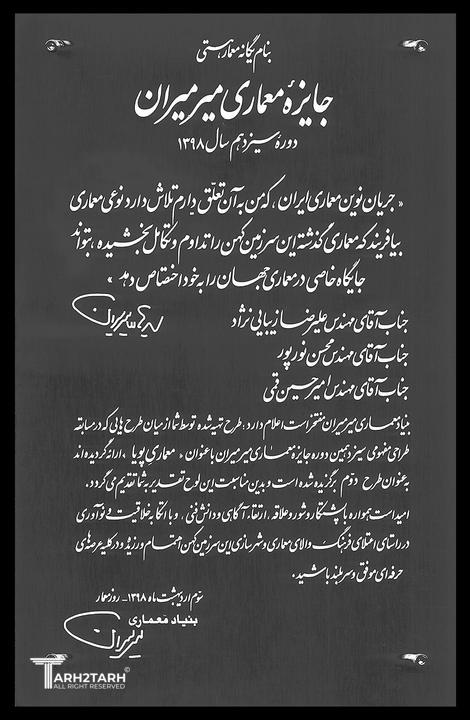 بنام یگانه معمار هستی
جایزهٔ معماری میرمیران
دورهٔ سیزدهم سال ۱۳۹۸
« جریان نوین معماری ایران ، که من به آن تعلّق دارم تلاش دارد نوعی معماری
بیافریند که معماری گذشته این سرزمین کهن را تداوم و تکامل بخشیده ، بتواند
جایگاه خاصی در معماری جهان را به خود اختصاص دهد »
جناب آقای مهندس علیرضا زیبایی نژاد
جناب آقای مهندس محسن نورپور
جناب آقای مهندس امیرحسین قمی
بنیاد معماری میرمیران مفتخر است اعلام دارد : طرح تهیه شده توسط شما از میان طرح هایی که در مسابقه
طراحی مفهومی سیزدهمین دوره جایزه معماری میرمیران با عنوان « معماری پویا » ارائه گردیده اند
به عنوان طرح دوّم برگزیده شده است و بدین مناسبت این لوح تقدیر به شما تقدیم می گردد.
امید است همواره با پشتکار و شور و علاقه ، ارتقاء آگاهی و دانش فنی ، و با اتکا به خلاقیت و نوآوری
در راستای اعتلای فرهنگ والای معماری و شهرسازی این سرزمین کهن اهتمام ورزیده و در کلیه عرصه های
حرفه ای موفق و سربلند باشید.
سوم اردیبهشت ماه ۱۳۹۸ - روز معمار
بنیاد معماری
میرمیران
TARH2TARH©
ALL RIGHT RESERVED